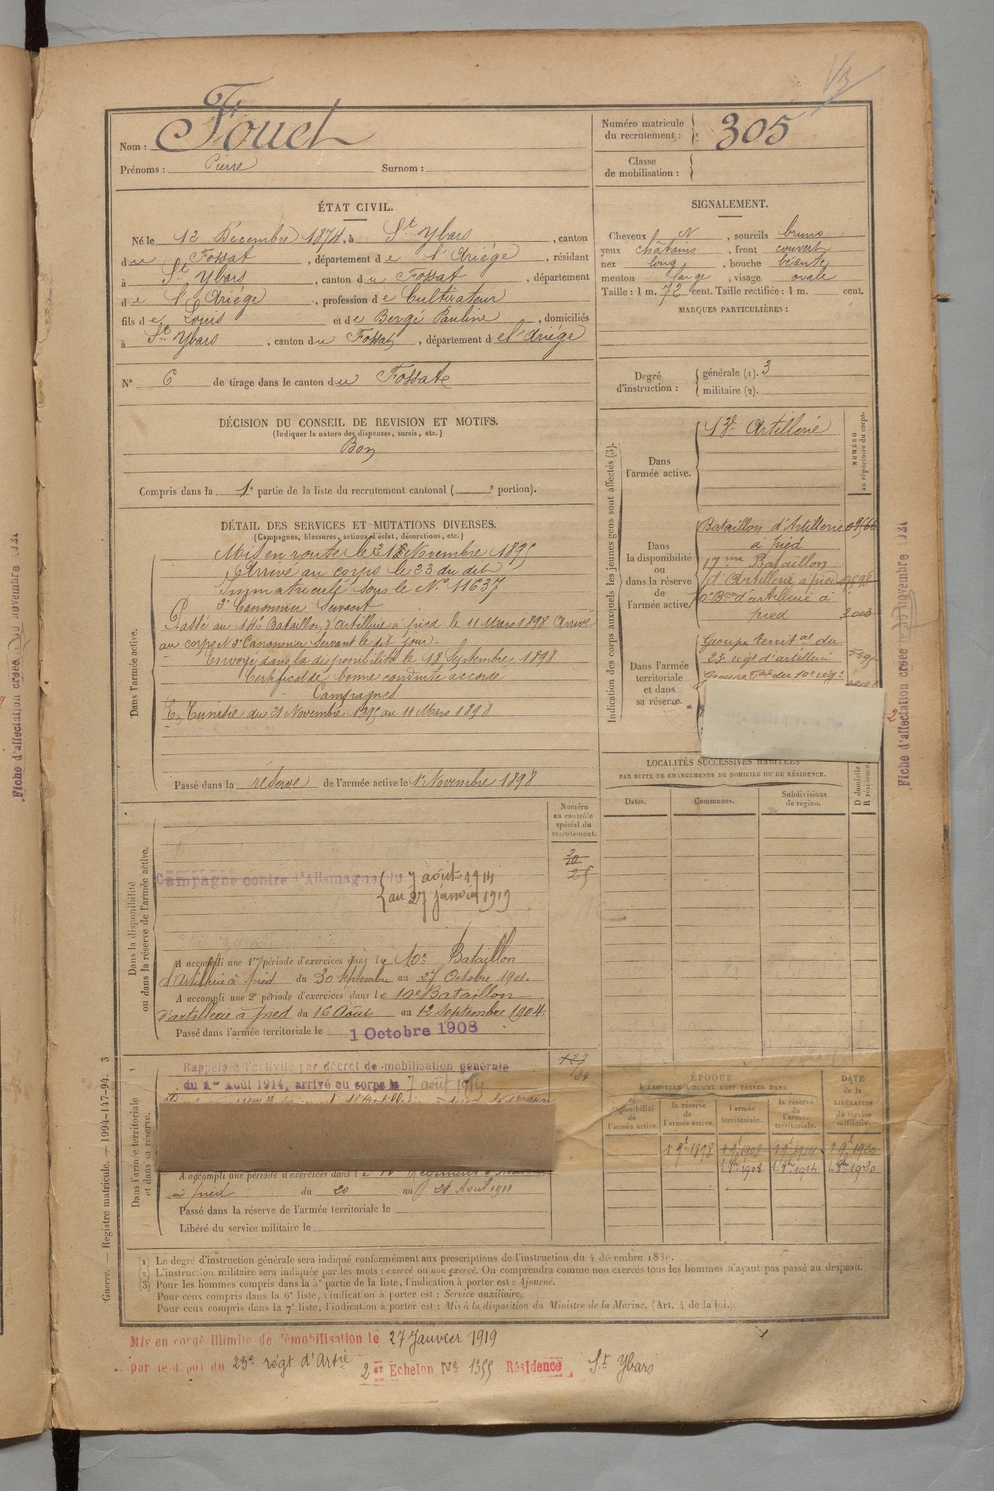 1/3
Nom : Fouet
Prénoms : Pierre Surnom :
Numéro matricule du recrutement : 305
Classe de mobilisation :
ÉTAT CIVIL.
Né le 12 Décembre 1874, à St Ybars, canton
du Fossat, département de l'Ariège, résidant
à St Ybars, canton du Fossat, département
de l'Ariège, profession de Cultivateur
fils de Louis et de Bergé Pauline, domiciliés
à St Ybars, canton du Fossat, département de l'Ariège
N° 6 de tirage dans le canton du Fossat
SIGNALEMENT.
Cheveux N, sourcils bruns
yeux châtains, front couvert
nez long, bouche béante
menton large, visage ovale
Taille : 1 m. 72 cent. Taille rectifiée : 1 m. cent.
MARQUES PARTICULIÈRES :
Degré d'instruction : générale (1). 3
militaire (2).
DÉCISION DU CONSEIL DE REVISION ET MOTIFS.
(Indiquer la nature des dispenses, sursis, etc.)
Bon
Compris dans la 1e partie de la liste du recrutement cantonal ( e portion).
DÉTAIL DES SERVICES ET MUTATIONS DIVERSES.
(Campagnes, blessures, actions d'éclat, décorations, etc.)
Dans l'armée active.
Mis en route le 21 Novembre 1895
Arrivé au corps le 23 du dit
Immatriculé sous le N° 11637
2e Canonnier Servant
Passé au Bataillon d'Artillerie à pied le 11 Mars 1898 Arrivé
au corps et 2e Canonnier Servant le dit jour.
Envoyé dans la disponibilité le 18 Septembre 1898
Certificat de bonne conduite accordé
Campagnes
En Tunisie du 21 Novembre 1895 au 11 Mars 1898
Passé dans la réserve de l'armée active le 1er Novembre 1898
Indication des corps auxquels les jeunes gens sont affectés (3).
NUMÉRO au répertoire du corps.
Dans l'armée active.
13e Artillerie
Dans la disponibilité ou dans la réserve de l'armée active.
Bataillon d'Artillerie
à pied
17me Bataillon
d'Artillerie à pied
10e Bon d'artillerie à
pied
Dans l'armée territoriale et dans sa réserve.
Groupe territal du
23e régt d'artillerie
Groupe Tal du 10e régt
LOCALITÉS SUCCESSIVES HABITÉES
PAR SUITE DE CHANGEMENTS DE DOMICILE OU DE RÉSIDENCE.
Dates. Communes. Subdivisions de région. D domicile R résidence
Numéro au contrôle spécial du recrutement.
Dans la disponibilité ou dans la réserve de l'armée active.
Campagne contre l'Allemagne du 7 août 1914
au 27 janvier 1919
A accompli une 1re période d'exercices dans le 10e Bataillon
d'Artillerie à pied du 30 Septembre au 27 Octobre 1901
A accompli une 2e période d'exercices dans le 10e Bataillon
d'artillerie à pied du 16 Août au 12 Septembre 1904
Passé dans l'armée territoriale le 1 Octobre 1908
Dans l'armée territoriale et dans sa réserve.
Rappelé à l'activité par décret de mobilisation générale
du 1er Août 1914, arrivé au corps le 7 août 1914
A accompli une période d'exercices dans le
à pied du 20 au 28 Avril 1911
Passé dans la réserve de l'armée territoriale le
Libéré du service militaire le
ÉPOQUE
À LAQUELLE L'HOMME DOIT PASSER DANS
la disponibilité de l'armée active. la réserve de l'armée active. l'armée territoriale. la réserve de l'armée territoriale. DATE de la LIBÉRATION du service militaire.
(1) Le degré d'instruction générale sera indiqué conformément aux prescriptions de l'instruction du 4 décembre 1889.
(2) L'instruction militaire sera indiquée par les mots : exercé ou non exercé. On comprendra comme non exercés tous les hommes n'ayant pas passé au drapeau.
(3) Pour les hommes compris dans la 5e partie de la liste, l'indication à porter est : Ajourné.
Pour ceux compris dans la 6e liste, l'indication à porter est : Service auxiliaire.
Pour ceux compris dans la 7e liste, l'indication à porter est : Mis à la disposition du Ministre de la Marine. (Art. 4 de la loi.
Guerre. — Registre matricule. — 1994-147-94. 3
Mis en congé illimité de démobilisation le 27 Janvier 1919
par le dépôt du 23e régt d'Artie 2er Echelon No 1355 Résidence St Ybars
Fiche d'affectation créée le 30 novembre 1921